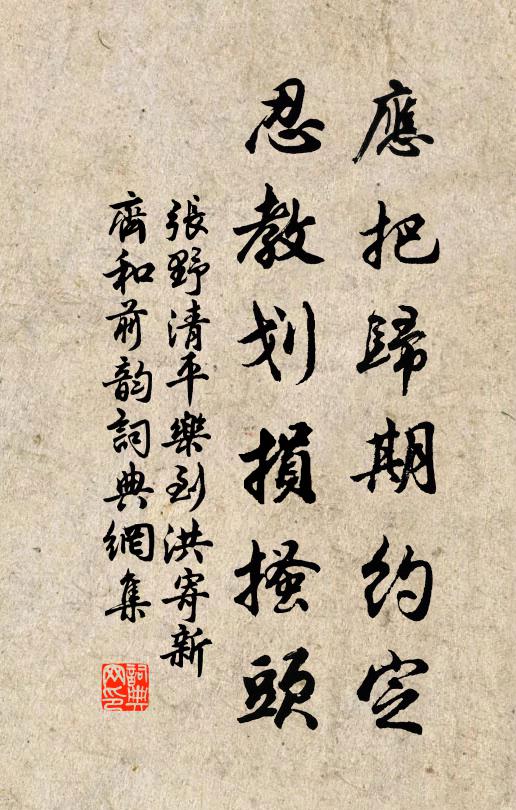 應把歸期約定
忍教划損搔頭
張野清平樂到洪寄新
齊和前韵詞典網集
詞典
网印